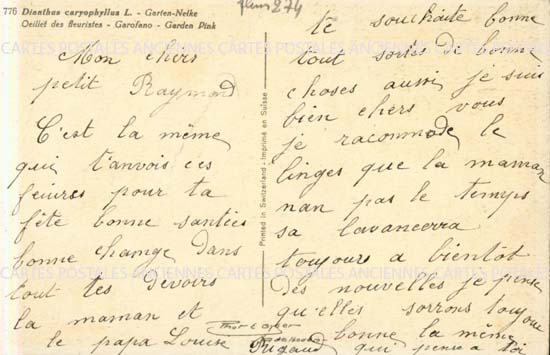 776 Dianthus caryophyllus L. - Garten-Nelke
Oeillet des fleuristes - Garofano - Garden Pink
fleurs 274
Mon chers
petit Raymond
C'est la même
qui t'anvois ces
feiures pour ta
fête bonne santies
bonne change dans
tout tes devoirs
la maman et
le papa Louise
Printed in Switzerland - Imprimé en Suisse
te souchaite bonne
tout sortes de bonne
choses aussi je suis
bien chers vous
je racommode le
linges que la maman
nan pas le temps
sa lavancerra
toujours a bientôt
des nouvelles je pense
qu'elles sorrons toujour
bonne la même
qui pense a toi
Dugaud
CARTES POSTALES ANCIENNES CARTES POSTALES ANCIENNES CARTES